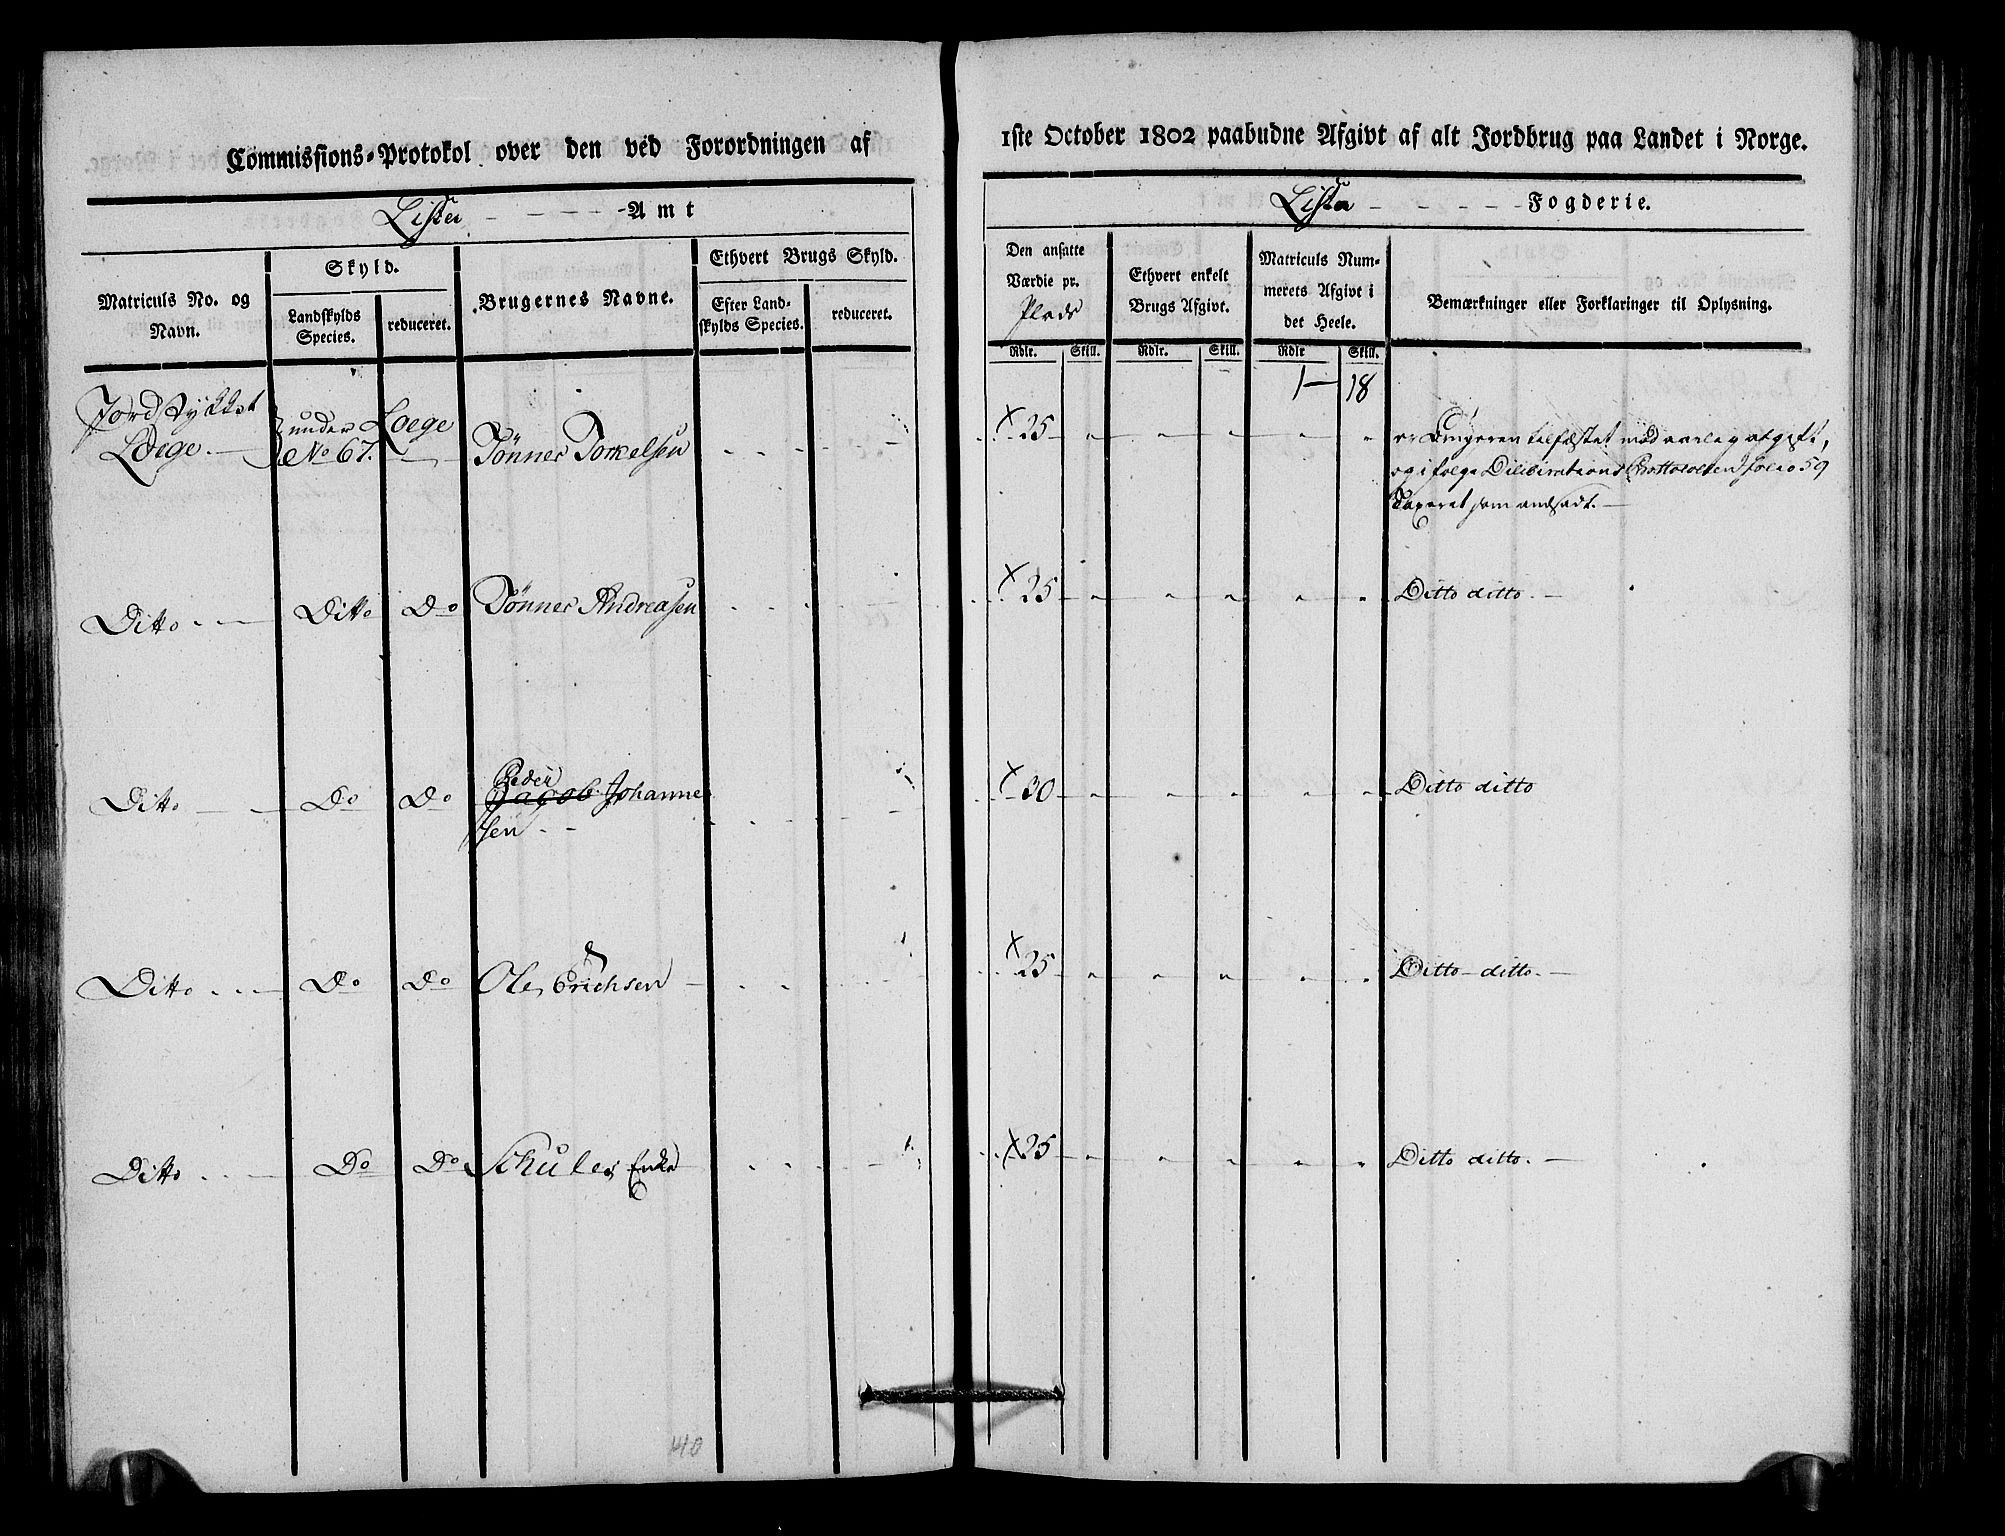 Commissions-Protokol over den ved Forordningen af
Lister Amt
Matriculs No. og Navn.
Skyld.
Landskylds Species.
reduceret.
Brugernes Navne.
Ethvert Brugs Skyld.
Efter Land-
skylds Species.
reduceret.
Jordstykket
Loege. under Loege
No 67. Tønnes Torkelsen
Ditto Ditto Do Tønnes Andreasen
Peder
Ditto Do Do Jacob Johanne
sen
Ditto Do Do Ole Erichsen
Ditto Do Do Schules Enke
110
1ste October 1802 paabudne Afgivt af alt Jordbrug paa Landet i Norge.
Lister Fogderie.
Den ansatte
Værdie pr.
Plads
Ethvert enkelt
Brugs Afgivt.
Matriculs Num-
merets Afgivt i
det Heele.
Bemærkninger eller Forklaringer til Oplysning.
Rdlr. Skill. Rdlr. Skill. Rdlr Skill.
1 18
x 25 er Brugeren tilfæstet mod aarlig afgift,
og i følge Deliberations Prottocollen folio 59
Taxeret som andsadt.
x 25 Ditto ditto.
x 30 Ditto ditto
x 25 Ditto ditto.
x 25 Ditto ditto.